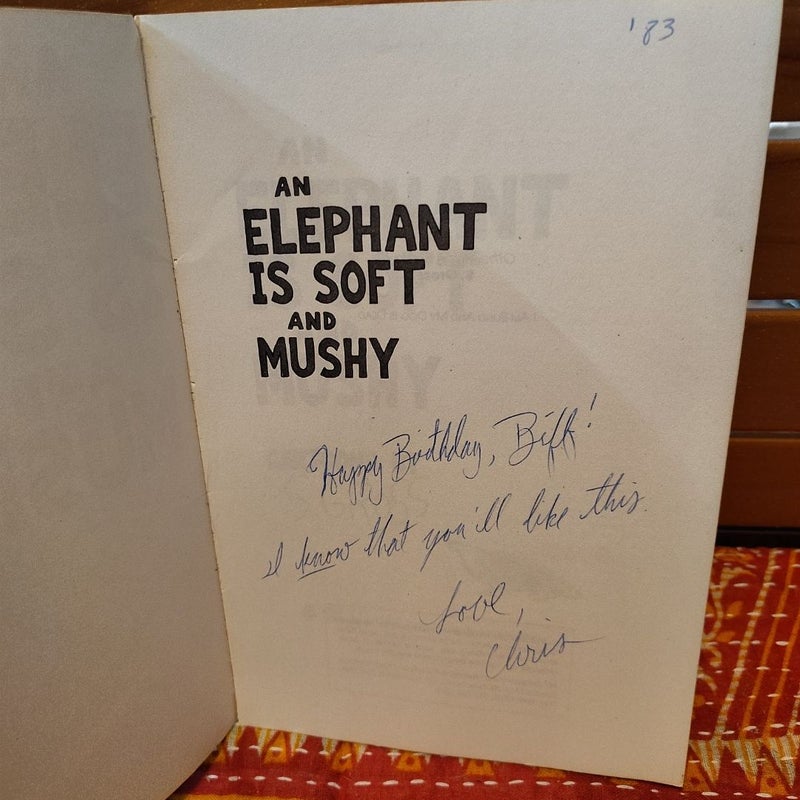 '83
AN
ELEPHANT
IS SOFT
AND
MUSHY
Happy Birthday, Biff!
I know that you'll like this.
Love,
Chris